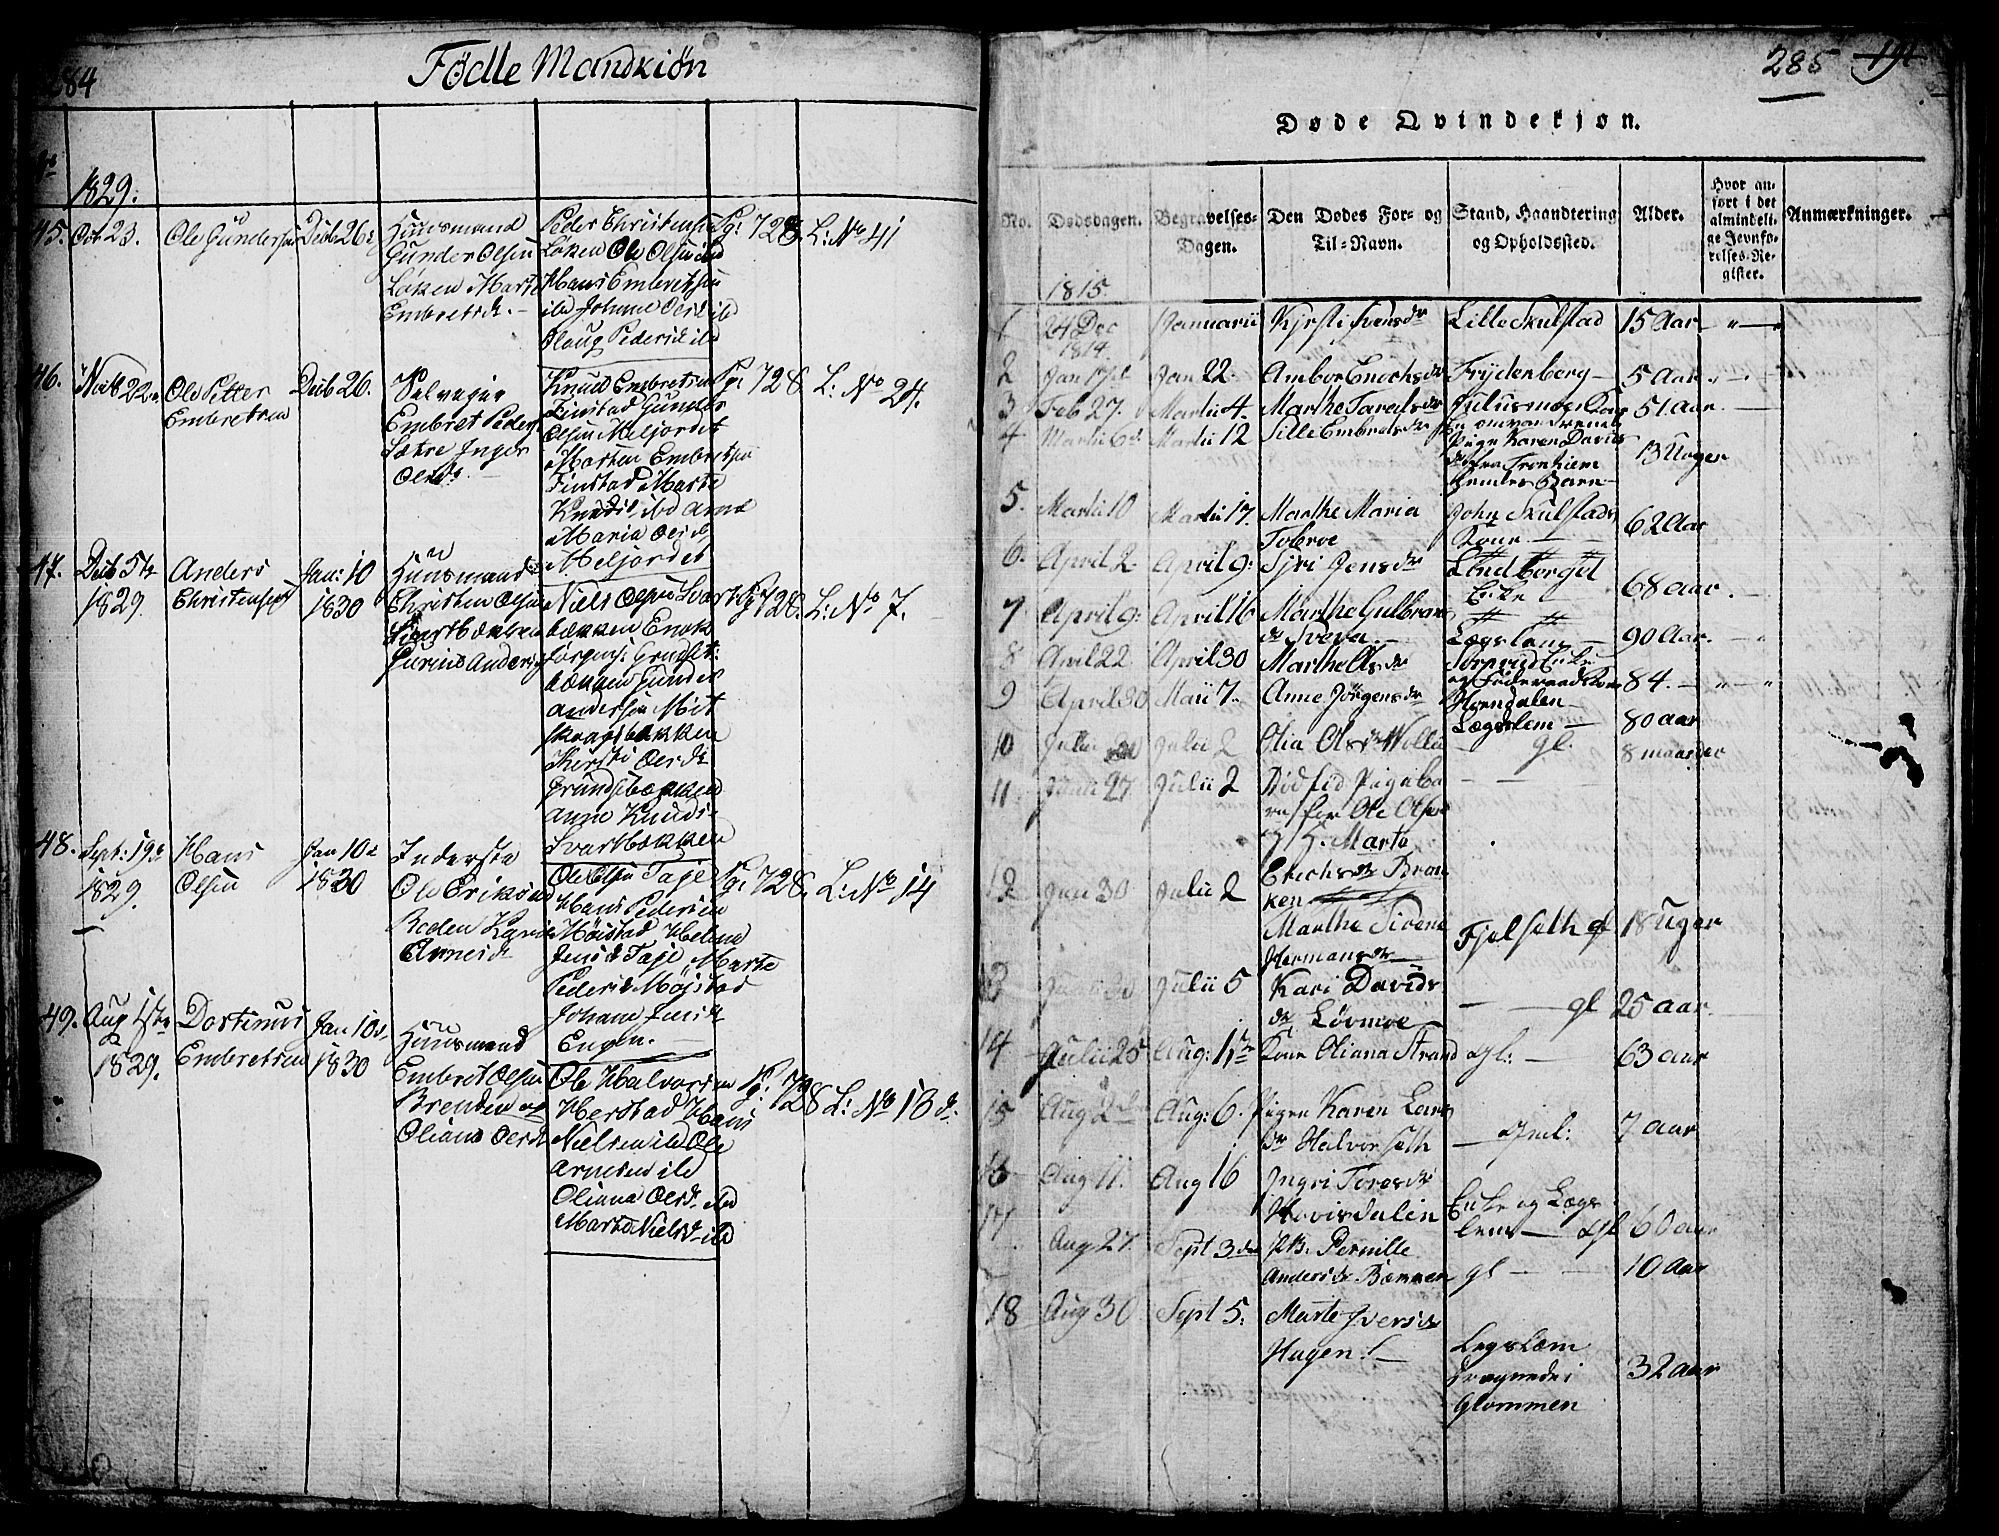 284
Fødde Mandkiøn
No
1829.
45. Oct 23. Ole Gundersen Decb 26. Huusmand Gunder Olsen Løken Marte Embretsd. Peder Christensen Løken Ole Olsen ibd Hans Embretsen ibd Johanne Olesd ibd Olaug Pedersd ibd Pg: 728. L: No 41
46. Novb 22. Ole Petter Embretsen Decb 26. Selveejer Embret Peders. Sætre Inger Olesd. Knud Embretsen Finstad Gunder Olsen Meljordet Morten Embretsen Finstad Marte Knudsd. ibd Anne Maria Olesd. Meljordet Pg: 728 L: No 24.
47. Decb 5te 1829. Anders Christensen Jan: 10 1830 Huusmand Christen Olsen Svartbækken Gurine Andersd Niels Olsen Svartbækken Enok Jørgens: Grundsetbækken Gunder Andersen Mitskogsbækken Kersti Olesd Grundsetbækken Anne Knudsd. Svartbækken Pg 728. L: No 7.
48. Sept: 19de 1829. Hans Olsen Jan 10de 1830 Inderste Ole Eriksen Boden Kari Arnesd Ole Olsen Taje Hans Pedersen Møistad Helene Jensd Taje, Marte Pedersd Møjstad Johane Jensd Engen. Pg: 728. L: No 14
49. Aug 1ste 1829. Dortinus Embretsen Jan 10de 1830 Huusmand Embret Olsen Brenden og Oliane Olesd Ole Halvorsen Herstad Hans Nielsen ibd Ole Arnesen ibd Oliana Olesd. ibd Marte Nielsd. ibd Pg: 728 L: No 13 d.
285 191
Døde Qvindekjøn.
No. Dødsdagen. Begravelses-Dagen. Den Dødes For- og Til-Navn. Stand, Haandtering og Opholdssted. Alder. Hvor anført i det almindelige Jevnførelses-Register. Anmærkninger.
1815.
1 24 Dec 1814. Januarii Kjrsti Svensdr Lille Skulstad 15 Aar
2 Jan 17de Jan 22. Ambor Enochsdr Frydenberg 5 Aar
3 Feb 27. Martii 4. Marthe Taralsdr Julusmoen Kone 51 Aar.
4 Martii 6de Martii 12 Sille Embretsdr En omvandrende Pige Karen Davidsdr fra Tronhiem hendes Barn 13 Uger
5. Martii 10 Martii 17. Marthe Maria Tobroe John Skulstads Kone 62 Aar
6. April 2 April 9: Sjri Jensdr Lindberget Enke 68 aar.
7 April 9: April 16 Marthe Gulbransdr Svea. Lægslam 90 Aar.
8 April 22 April 30 Marthe Olsdr Torprud Enke og Føderaadskone 84.
9 April 30 Maii 7. Anne Jørgensdr Horndalen Lægslem 80 aar
10 Julii 2 Olia Olsdr Wollen gl. 8 maaneder
11 Junii 27 Julii 2 Dødfød Pigebarn for Ole Olsen og H. Marte Enochsdr Bronken
12 Jun 30 Julii 2 Marthe Sirene Hermansdr Fjelseth gl 18 Uger
13 Julii 5 Kari Davidsdr Løvmoe gl 25 aar.
14 Julii 25 Aug: 1ste Kone Oliana Strand gl: 63 aar
15 Aug 2den Aug: 6. Pigen Karen Larsdr Halvorseth 7 aar
16 Aug 11. Aug 16 Ingri Toresdr Hovisdalen Enke og Lægslem gl 60 aar
17 Aug 27. Sept 3die Pernille Andersdr Bæmmen gl 10 Aar
18 Aug 30 Sept 5. Marte Iversdr Hagen. Legslæm Drugnede i Glommen 32 aar